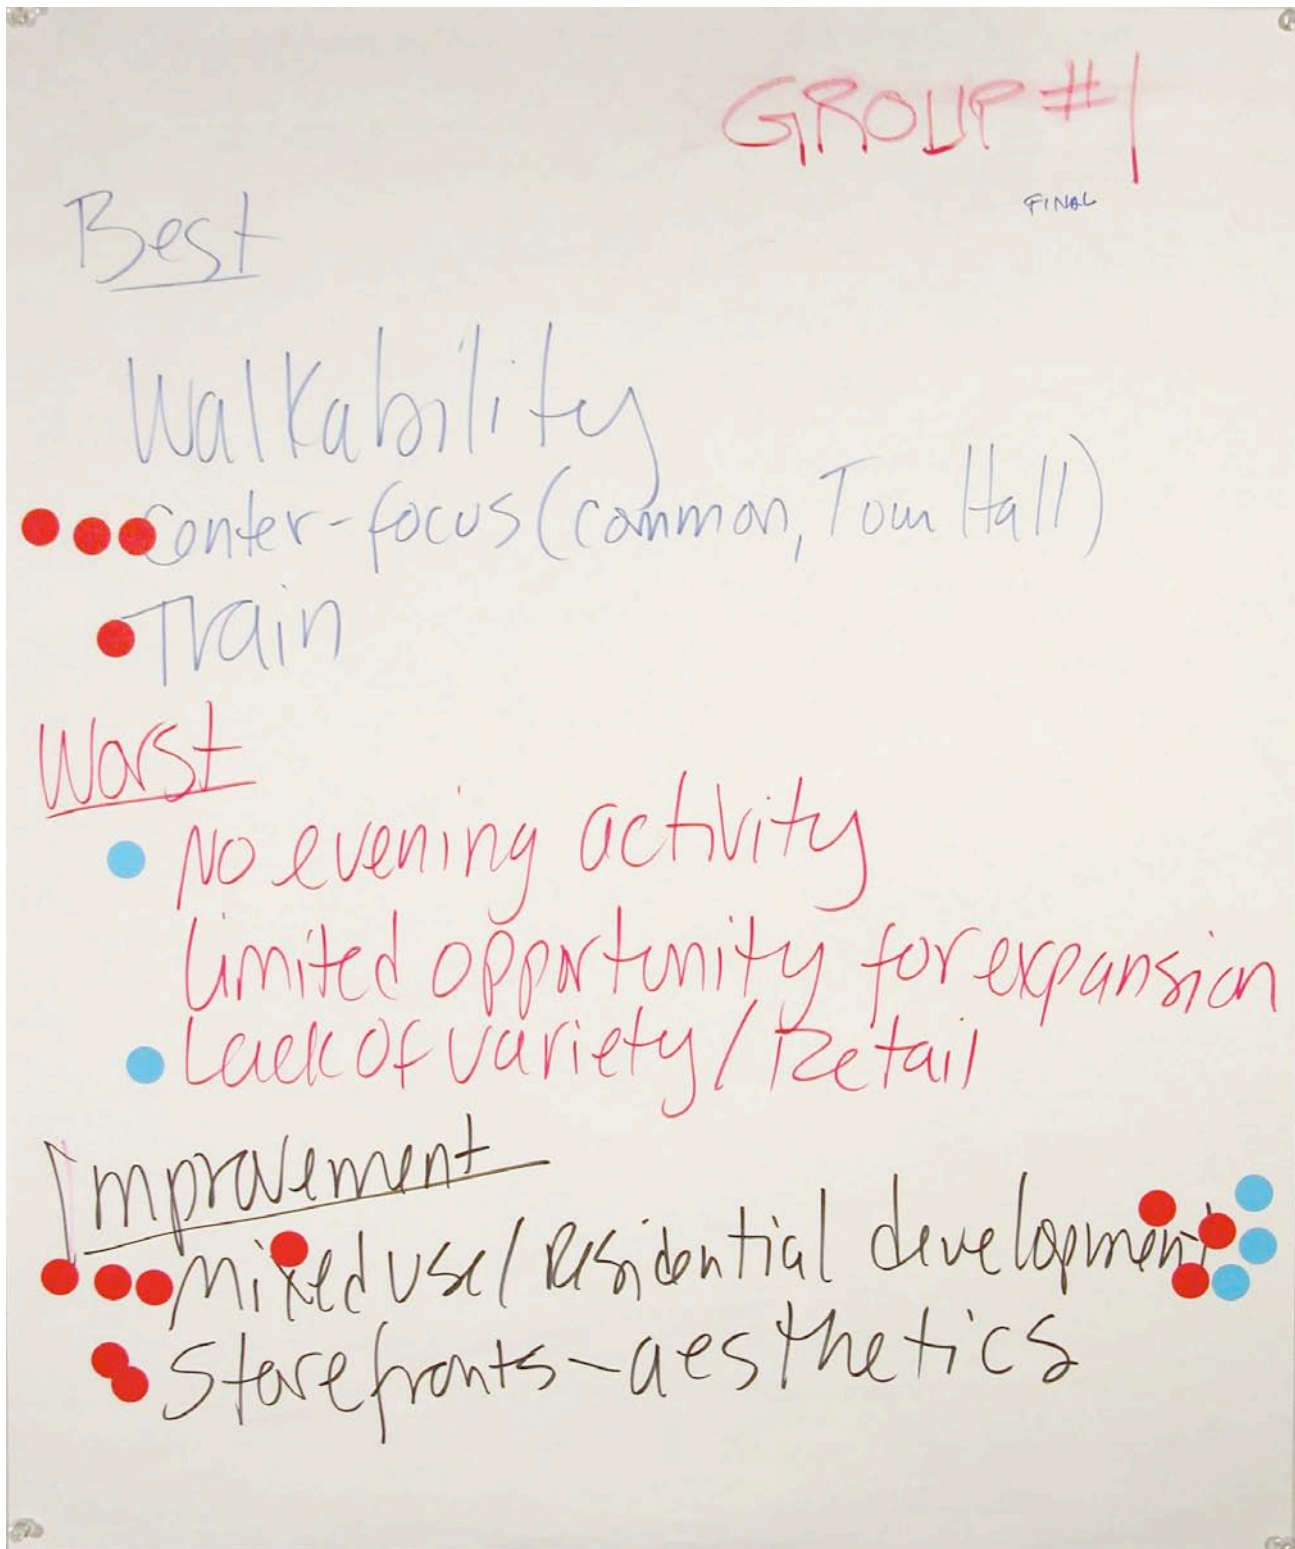 GROUP #1
FINAL
Best
Walkability
Center-focus (common, Town Hall)
Train
Worst
No evening activity
Limited opportunity for expansion
Lack of variety / Retail
Improvement
Mixed use / Residential development
Storefronts - aesthetics